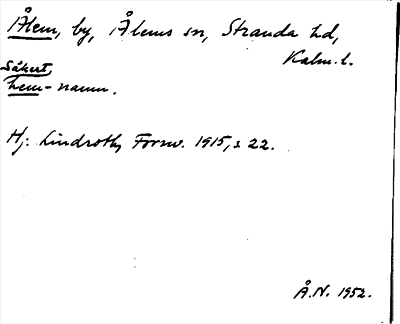 Ålem, by, Ålems sn, Stranda hd,
Kalm. l.
Säkert
hem-namn.
Hj. Lindroth, Fornv. 1915, s. 22.
Å.N. 1952.